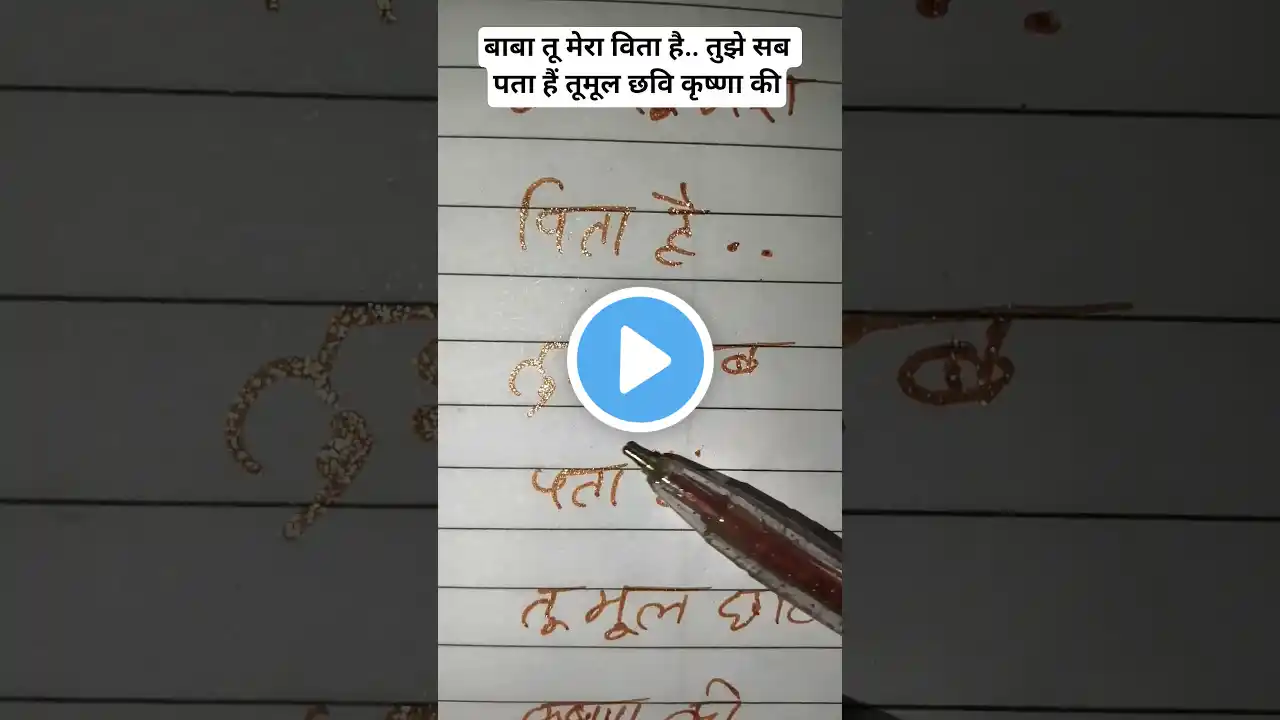 बाबा तू मेरा विता है.. तुझे सब
पता हैं तूमूल छवि कृष्णा की
विता है..
पता
तू मूल
कृष्णा की